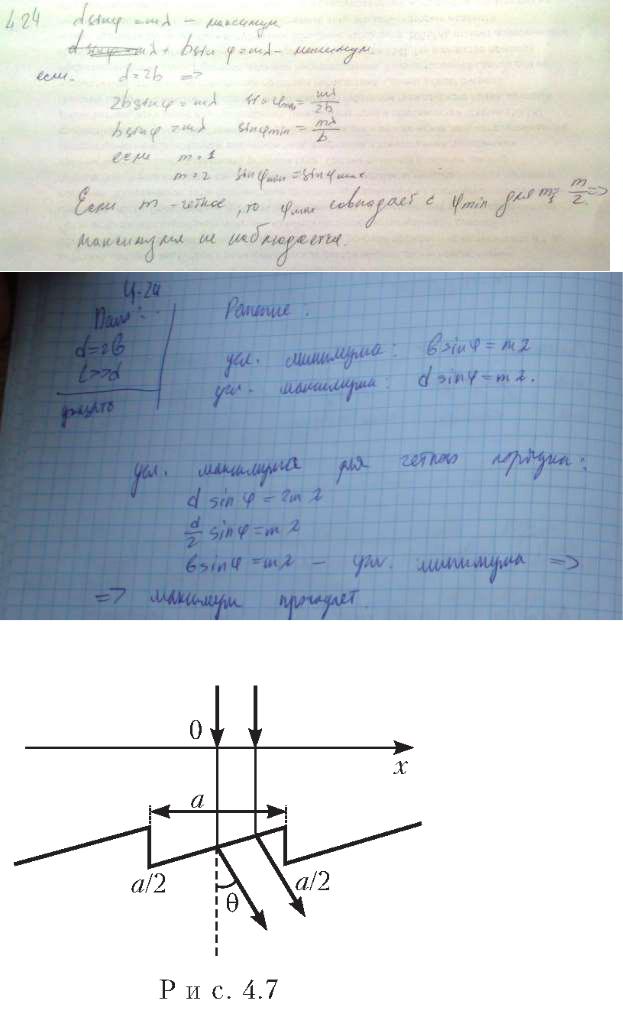 4.24 d sinφ = mλ – максимум
d sinφ = mλ + b sin φ = mλ – минимум
если d = 2b =>
2b sinφ = mλ sinφmax = mλ/2b
b sinφ = mλ sinφmin = mλ/b
если m = 1
m = 2 sinφmin = sinφmax
Если m – четное, то φmax совпадает с φmin для m = m/2 =>
максимума не наблюдается.
4-24
Дано:
Решение:
d = 2b
L >> d
усл. минимума: b sinφ = mλ
усл. максимума: d sinφ = mλ.
усл. максимума для четного порядка:
d sin φ = 2mλ
d/2 sinφ = mλ
b sinφ = mλ – усл. минимума =>
=> максимум пропадает.
0
x
a
a/2 θ a/2
Рис. 4.7